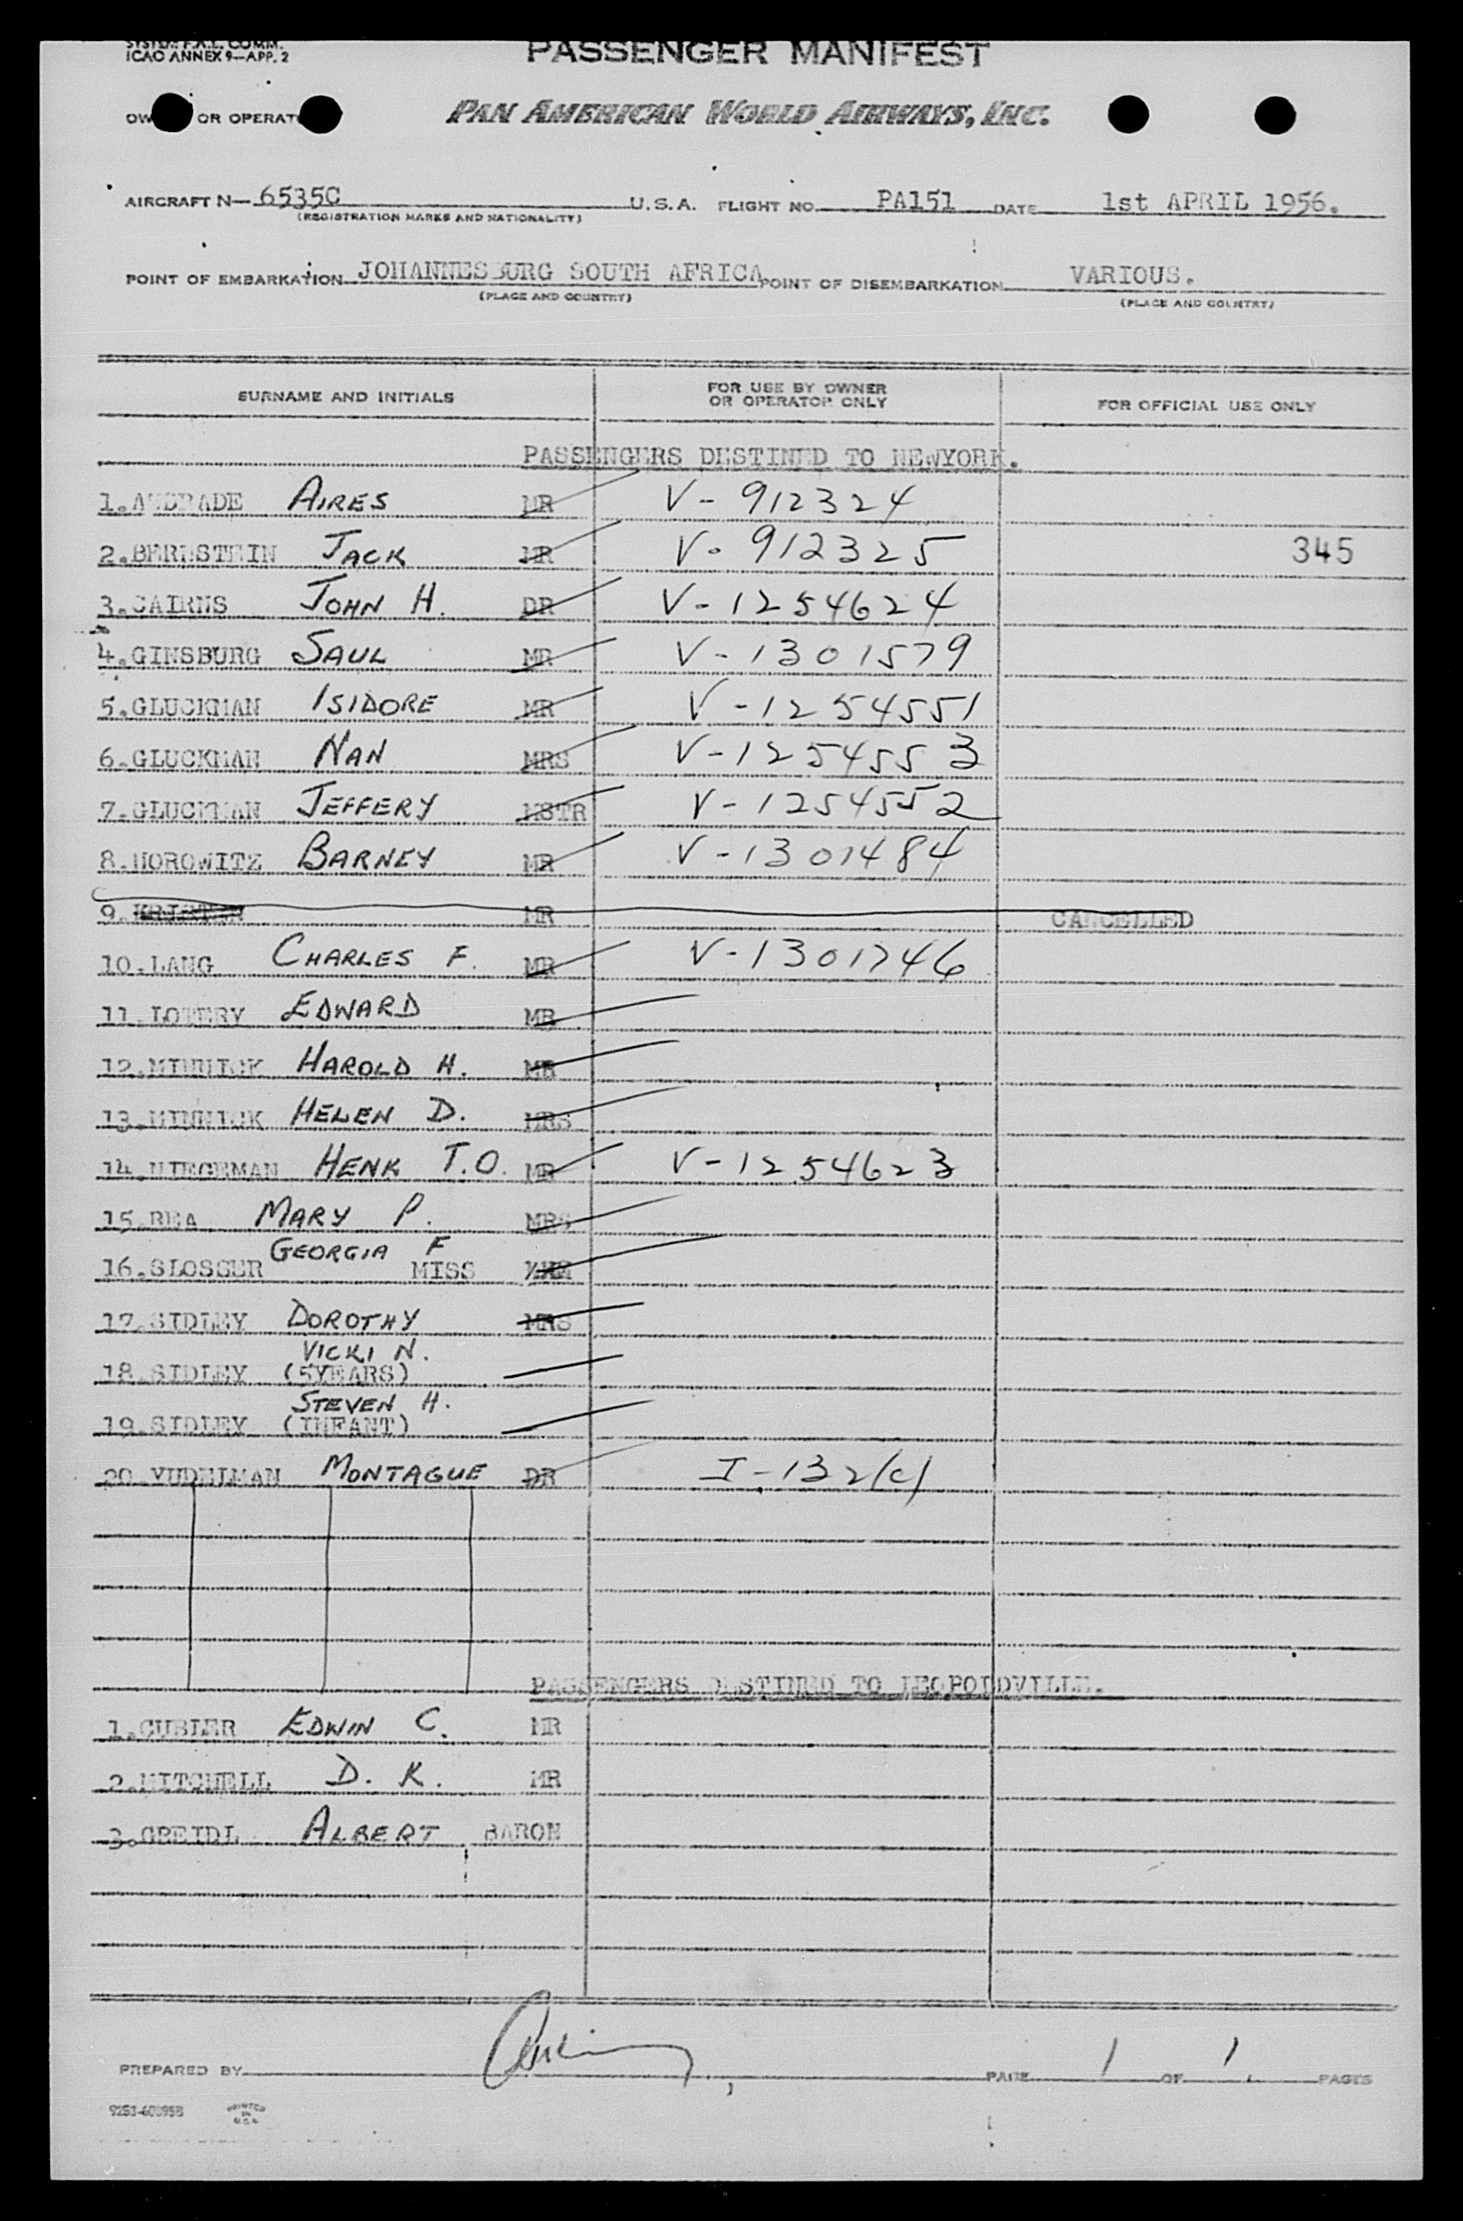 SYSTEM F.A.L. COMM.
ICAO ANNEX 9—APP. 2
PASSENGER MANIFEST
OW OR OPERAT
PAN AMERICAN WORLD AIRWAYS, INC.
AIRCRAFT N— 6535C U.S.A. FLIGHT NO. PA151 DATE 1st APRIL 1956.
(REGISTRATION MARKS AND NATIONALITY)
POINT OF EMBARKATION JOHANNESBURG SOUTH AFRICA POINT OF DISEMBARKATION VARIOUS.
(PLACE AND COUNTRY) (PLACE AND COUNTRY)
SURNAME AND INITIALS FOR USE BY OWNER OR OPERATOR ONLY FOR OFFICIAL USE ONLY
PASSENGERS DESTINED TO NEWYORK.
1.ANDRADE AIRES MR V-912324
2.BERNSTEIN JACK MR V-912325 345
3.CAIRNS JOHN H. DR V-1254624
4.GINSBURG SAUL MR V-1301579
5.GLUCKMAN ISIDORE MR V-1254551
6.GLUCKMAN NAN MRS V-1254553
7.GLUCKMAN JEFFERY MSTR V-1254552
8.HOROWITZ BARNEY MR V-1301484
9. MR CANCELLED
10.LANG CHARLES F. MR V-1301746
11.LOTERY EDWARD MR
12.MINNICK HAROLD H. MR
13.MINNICK HELEN D. MRS
14.NIEGEMAN HENK T.O. MR V-1254623
15.REA MARY P. MRS
16.SLOSSER GEORGIA F MISS
17.SIDLEY DOROTHY MRS
18.SIDLEY VICKI N. (5YEARS)
19.SIDLEY STEVEN H. (INFANT)
20.YUDELMAN MONTAGUE DR I-132(c)
PASSENGERS DESTINED TO LEOPOLDVILLE.
1.CUBLER EDWIN C. MR
2.MITCHELL D. K. MR
3.GREIDL ALBERT BARON
PREPARED BY PAGE 1 OF 1 PAGES
9253-600958 PRINTED IN U.S.A.